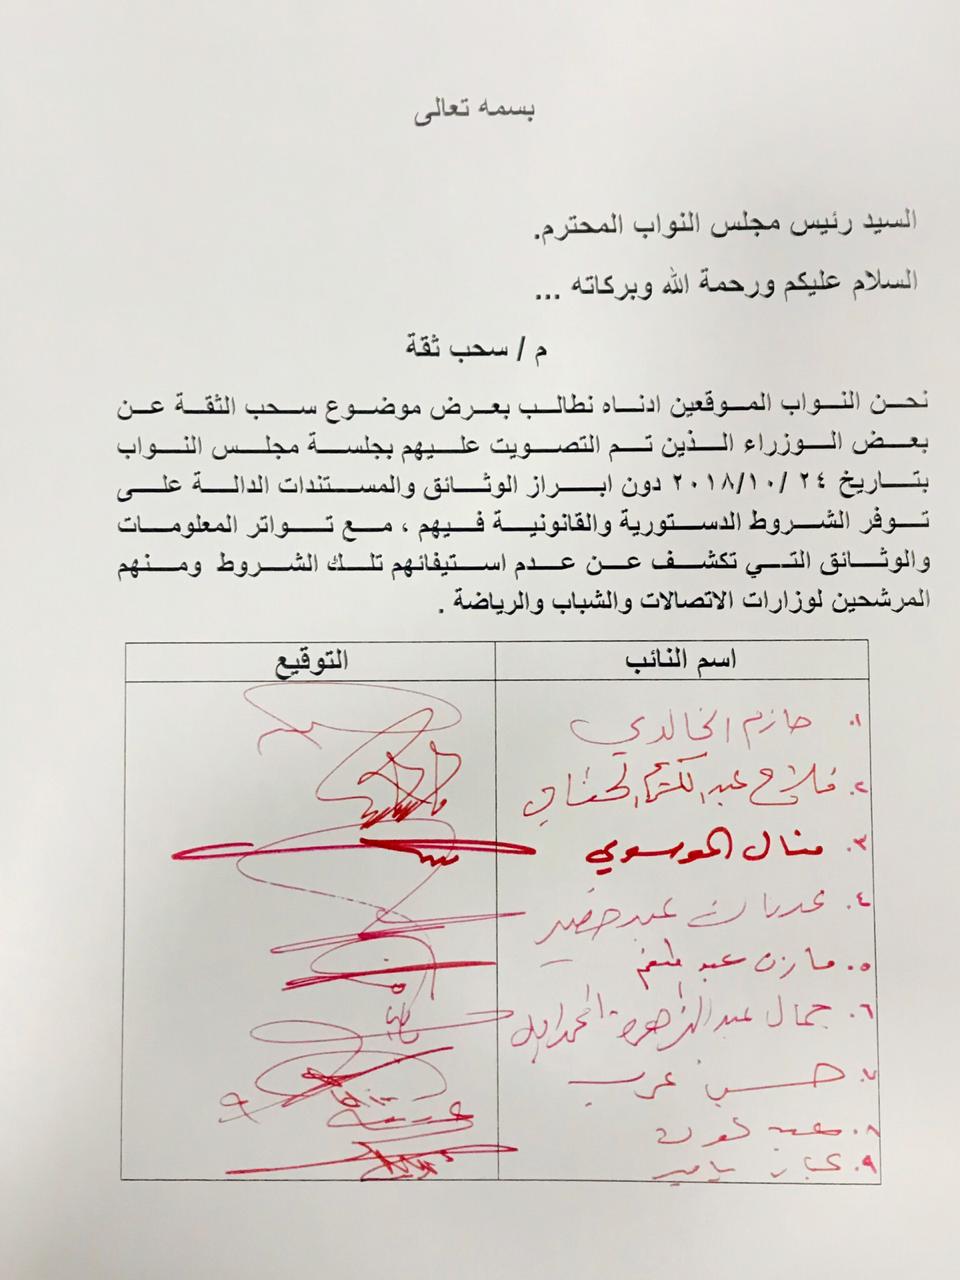 بسمه تعالى
السيد رئيس مجلس النواب المحترم.
السلام عليكم ورحمة الله وبركاته ...
م / سحب ثقة
نحن النواب الموقعين ادناه نطالب بعرض موضوع سحب الثقة عن
بعض الوزراء الذين تم التصويت عليهم بجلسة مجلس النواب
بتاريخ ٢٤ /٢٠١٨/١٠ دون ابراز الوثائق والمستندات الدالة على
توفر الشروط الدستورية والقانونية فيهم ، مع تواتر المعلومات
والوثائق التي تكشف عن عدم استيفائهم تلك الشروط ومنهم
المرشحين لوزارات الاتصالات والشباب والرياضة .
اسم النائب التوقيع
١. حازم الخالدي
٢. فلاح عبد الكريم الخفاجي
٣. منال الموسوي
٤. عبد خضير
٥. مازن عبد منعم
٦. جمال عبد الزهرة المحمداوي
٧. حسين عرب
٨.
٩.